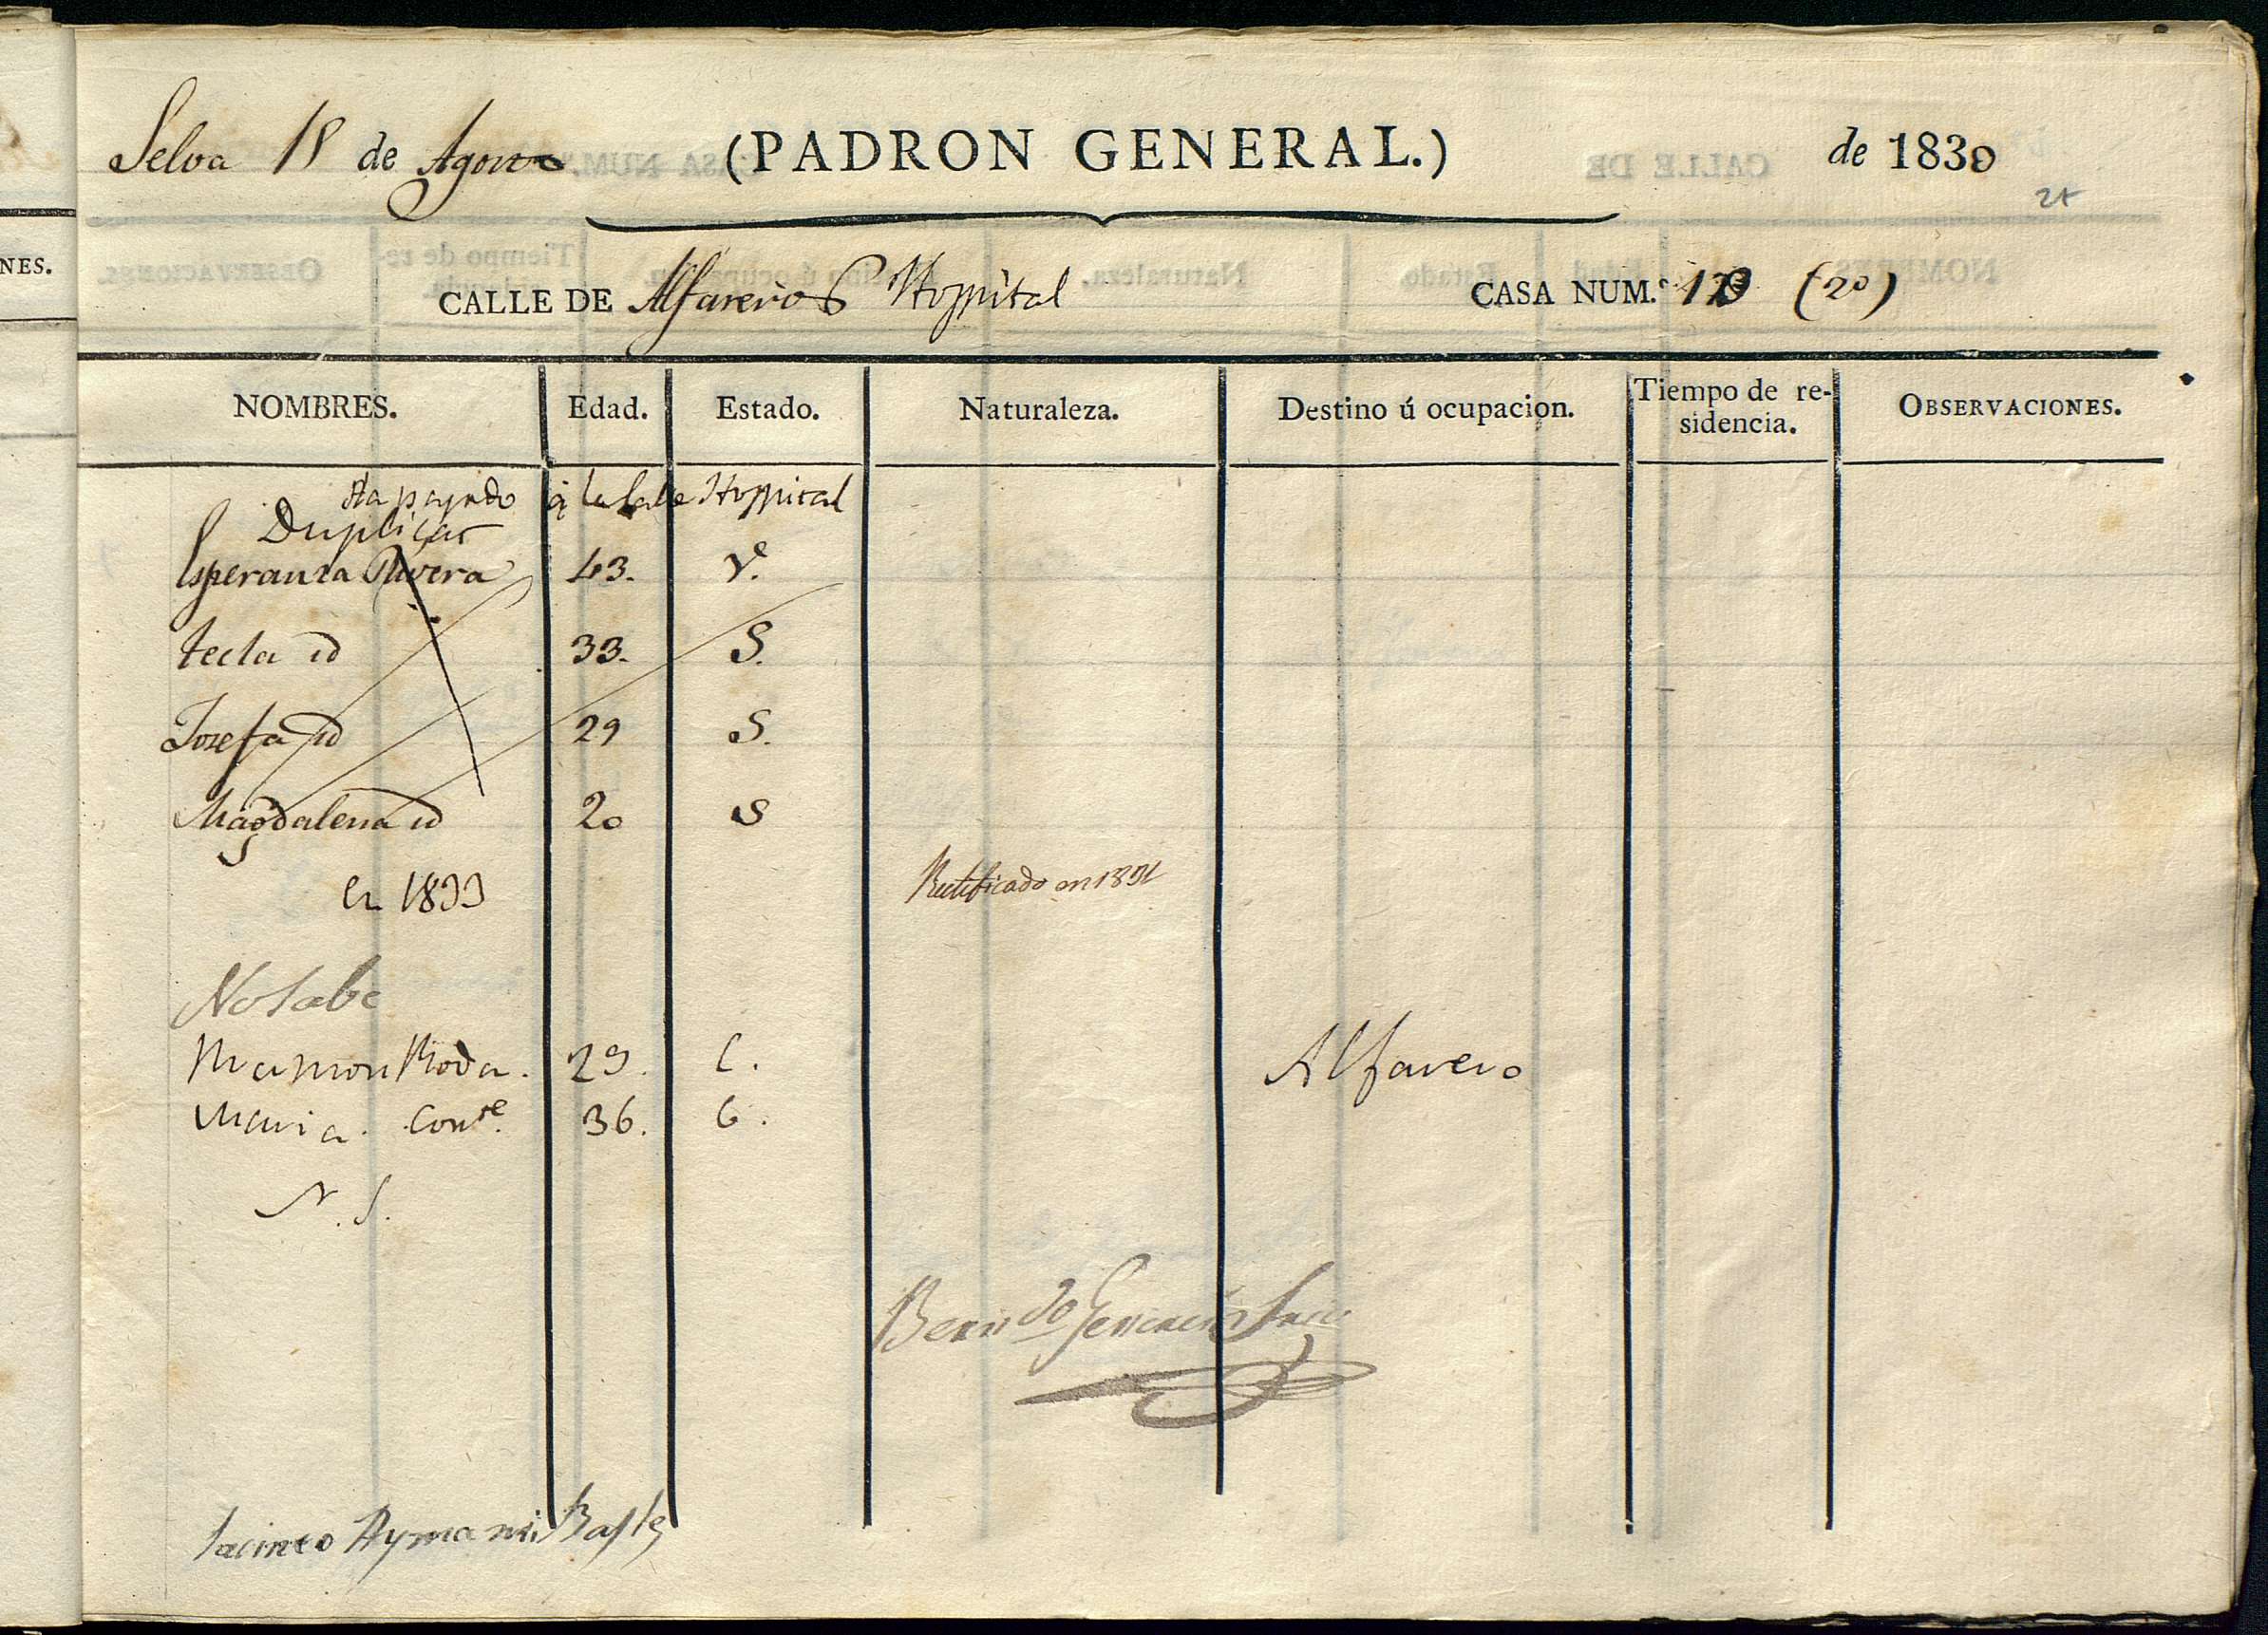 NES.
Selva 18 de Agosto (PADRON GENERAL.) de 1830
CALLE DE Alfareros Hospital CASA NUM.º (20)
NOMBRES. Edad. Estado. Naturaleza. Destino ú ocupacion. Tiempo de re-
sidencia. OBSERVACIONES.
Ha pasado á la Calle Hospital
Duplicar
Esperanza Rivera 43. Vª.
Tecla id 33. S.
Josefa id 29 S.
Magdalena id 20 S
En 1833 Rectificado en 1831
No sabe
Ramon Roda. 29. C. Alfarero
Maria Conte. 36. C.
N. S.
Jacinto Aymami Bayle